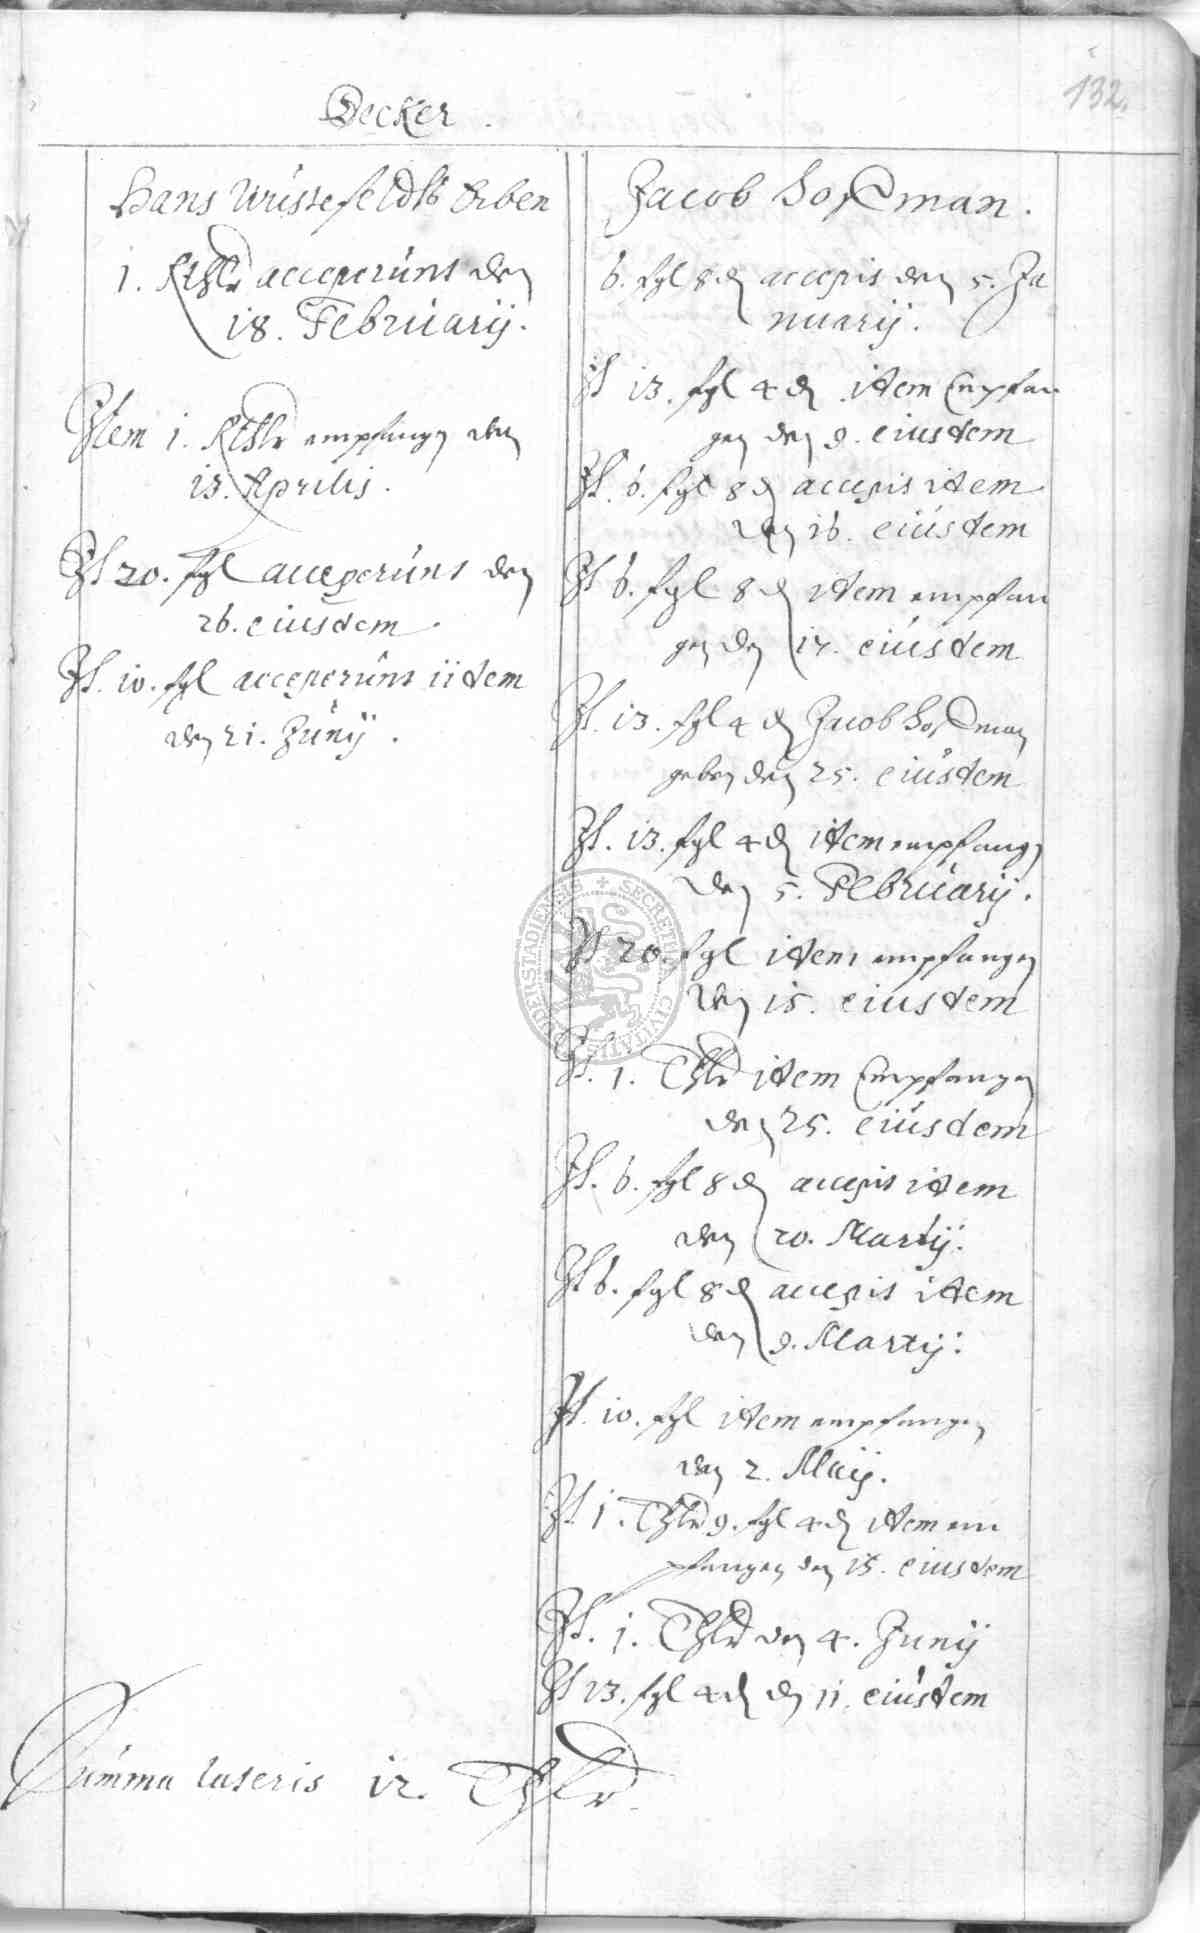 132.
Decker.
Hans Wüstefeldts Erben
1. Rthlr acceperunt den
18. Februarij.
Item 1. Rthlr empfangen den
13. Aprilis.
It 20. ßgl acceperunt den
26. eiusdem
It. 10. ßgl acceperunt iidem
den 21. Junij.
Jacob man.
6. ßgl 8 d accepit den 5. Ja
nuarij.
It 13. ßgl 4 d item empfan
gen den 9. eiusdem
It. 6. ßgl 8 d accepit item
den 16. eiusdem
It 6. ßgl 8 d item empfan
gen den 17. eiusdem
It. 13. ßgl 4 d Jacob man
geben den 25. eiusdem
It. 13. ßgl 4 d item empfangen
den 5. Februarij.
It 20. ßgl item empfangen
den 15. eiusdem
It. 1. Thlr item empfangen
den 25. eiusdem
It. 6. ßgl 8 d accepit item
den 20. Martij.
It 6. ßgl 8 d accepit item
den 9. Martij:
It. 10. ßgl item empfangen
den 2. Maij.
It. 1. Thlr 9. ßgl 4 d item em
pfangen den 15. eiusdem
It. 1. Thlr den 4. Junij
It 13. ßgl 4 d den 11. eiusdem
Summa lateris 12. Thlr
SECRETUM CIVITATIS DUDERSTADIENSIS